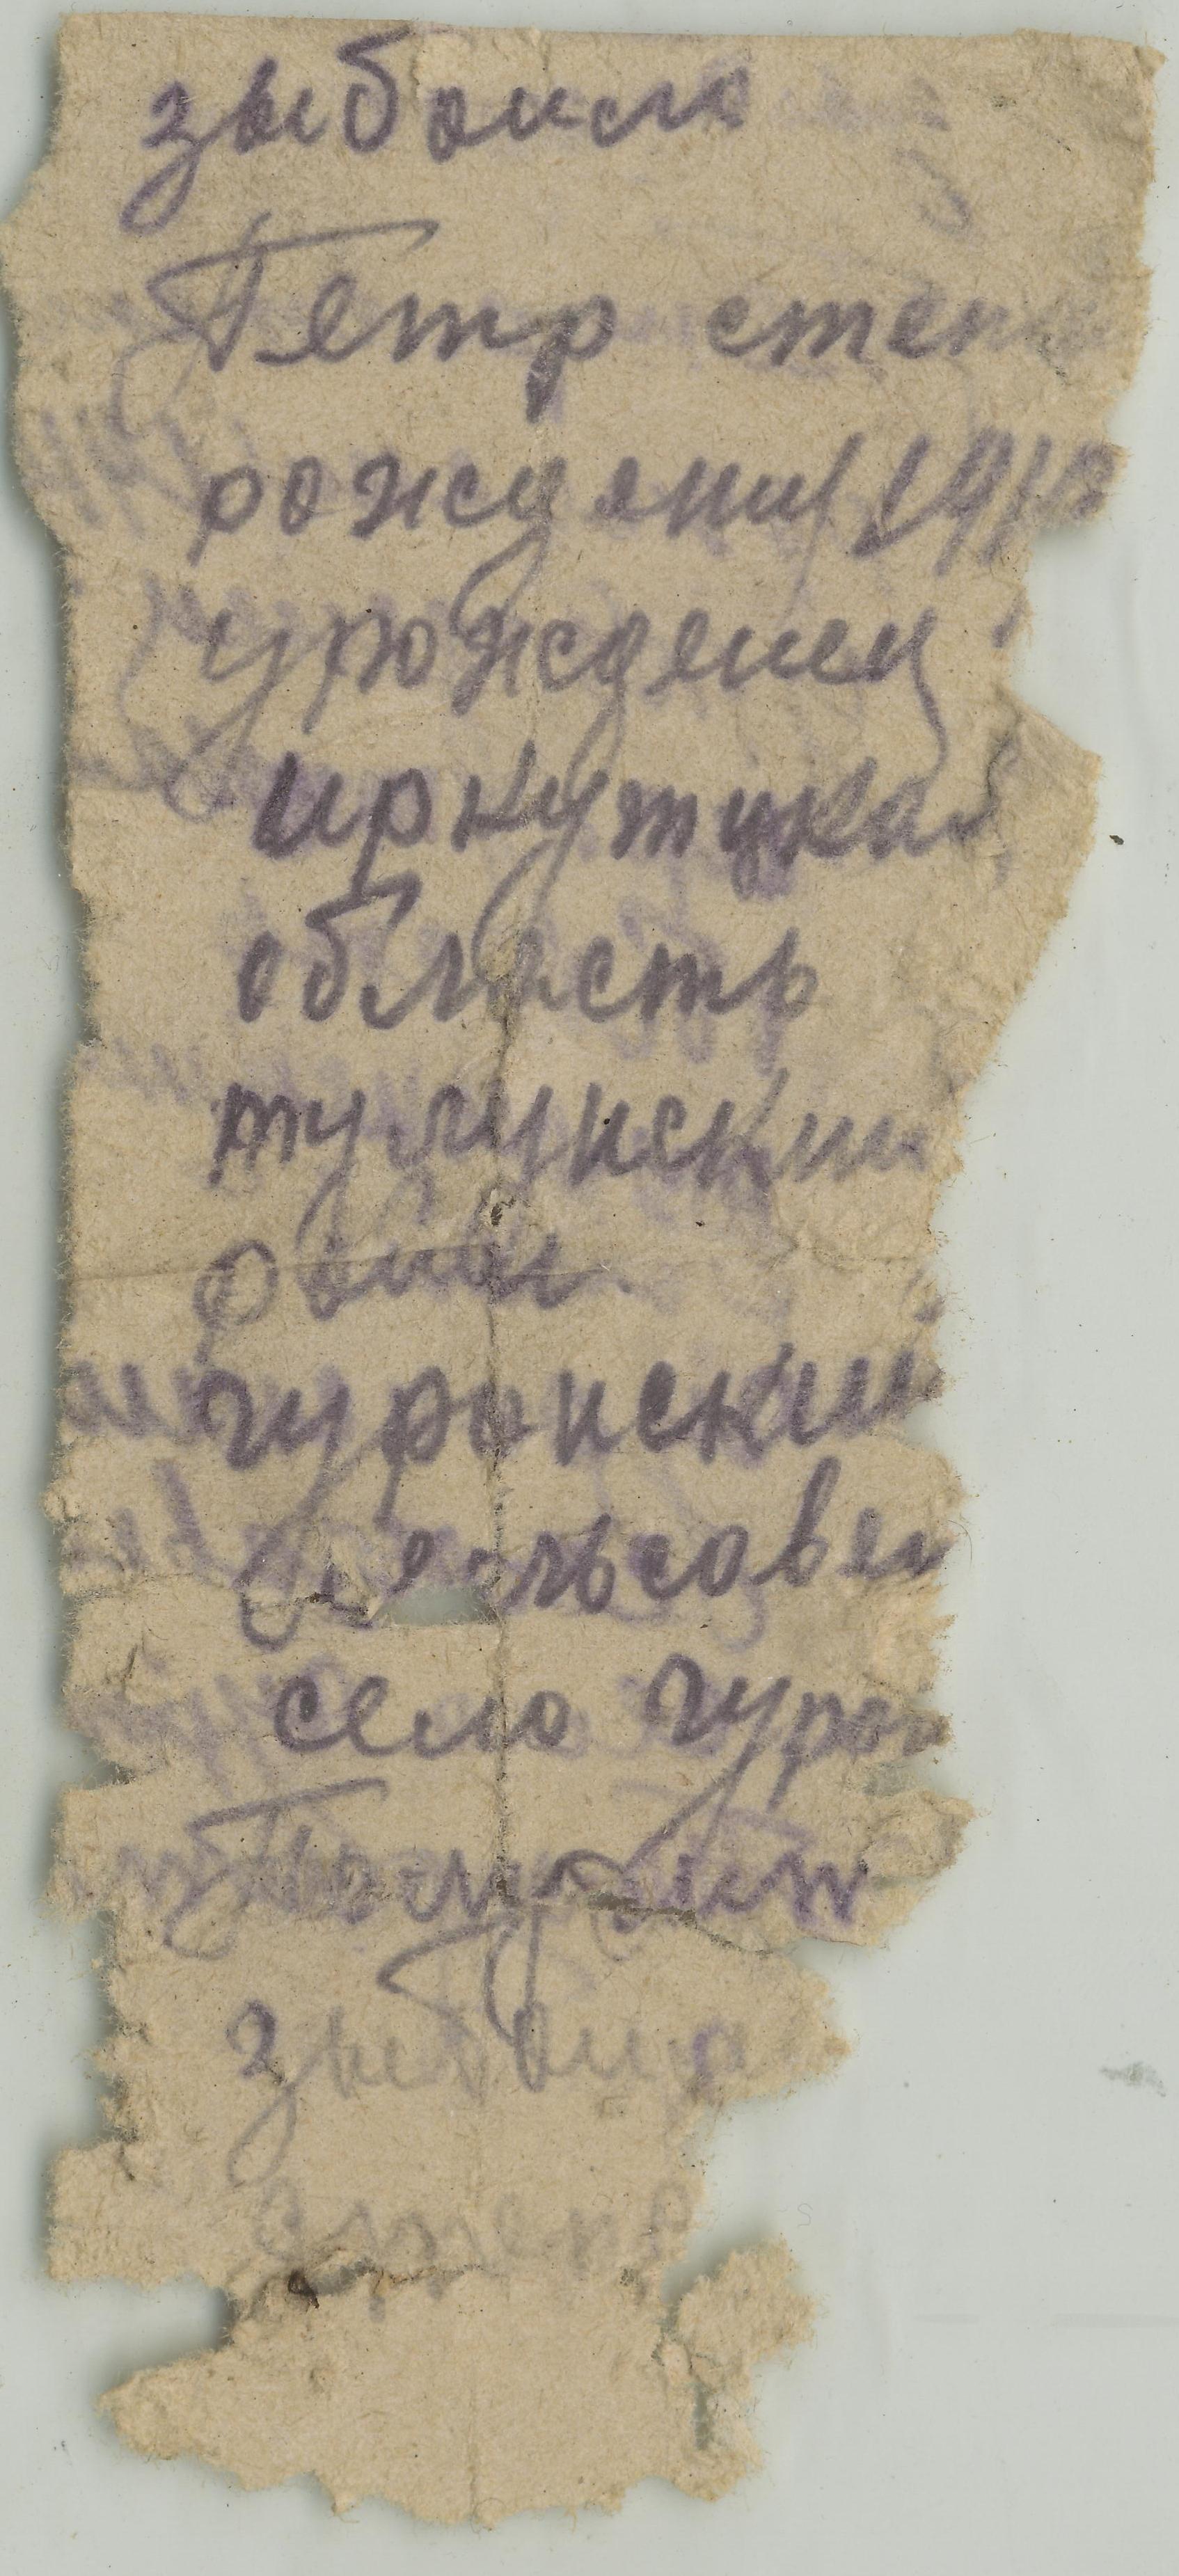 зыбайло
Петр степа
рождения 1918
урожденец
иркутцкая
область
тулунский
район
гуранский
сельсовет
село гуран
зыбайл